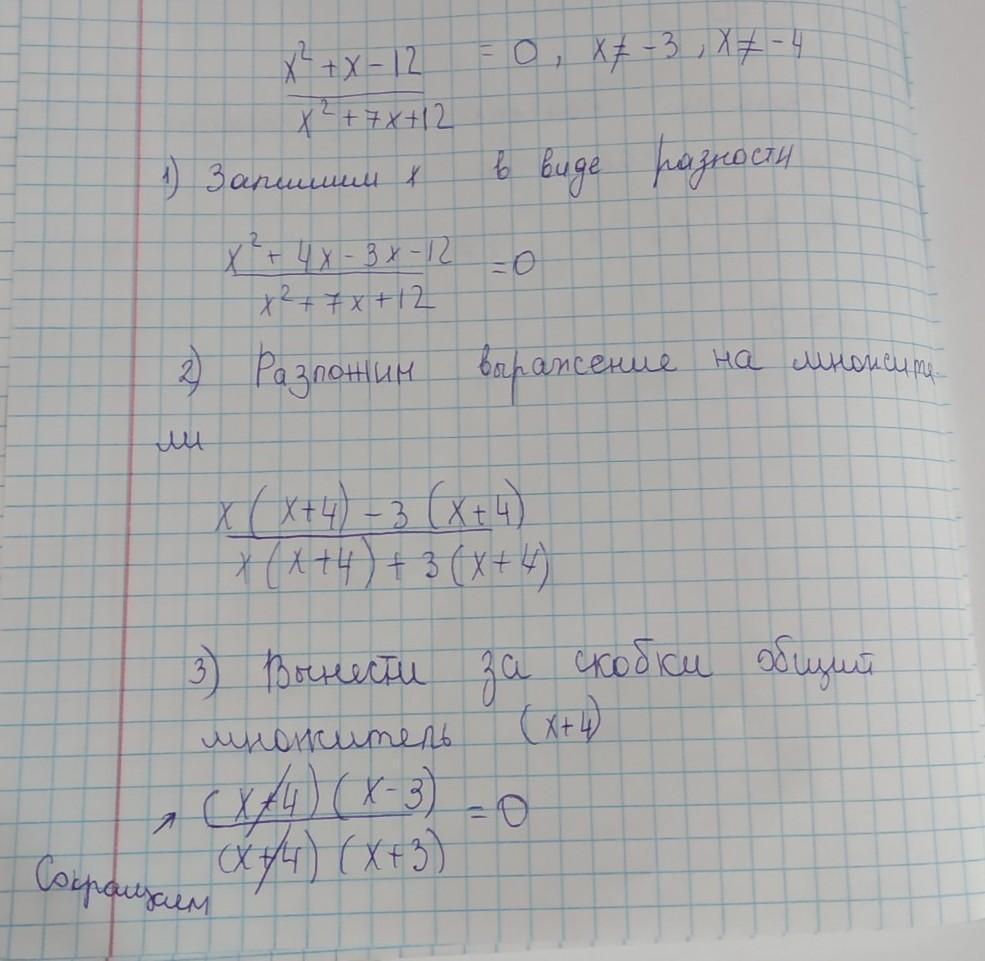 x² + x - 12 = 0, x ≠ -3, x ≠ -4
x² + 7x + 12
1) Запишим x в виде разности
x² + 4x - 3x - 12 = 0
x² + 7x + 12
2) Разложин выражение на множите-
ли
x(x+4) - 3(x+4)
x(x+4) + 3(x+4)
3) Вынести за скобки общий
множитель (x+4)
(x+4)(x-3) = 0
(x+4)(x+3)
Сокращаем